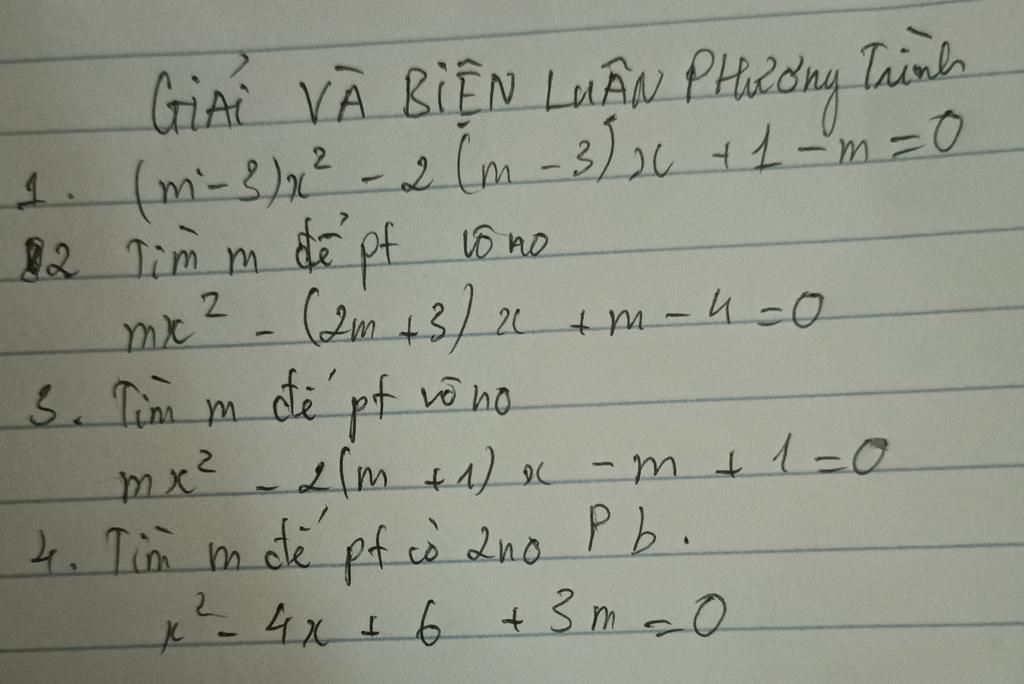 GIẢI VÀ BIỆN LUẬN PHƯƠNG TRÌNH
1. (m-3)x² - 2(m-3)x + 1 - m = 0
2 Tìm m để pt vô no
mx² - (2m+3)x + m - 4 = 0
3. Tìm m để pt vô no
mx² - 2(m+1)x - m + 1 = 0
4. Tìm m để pt có 2no Pb.
x² - 4x + 6 + 3m = 0